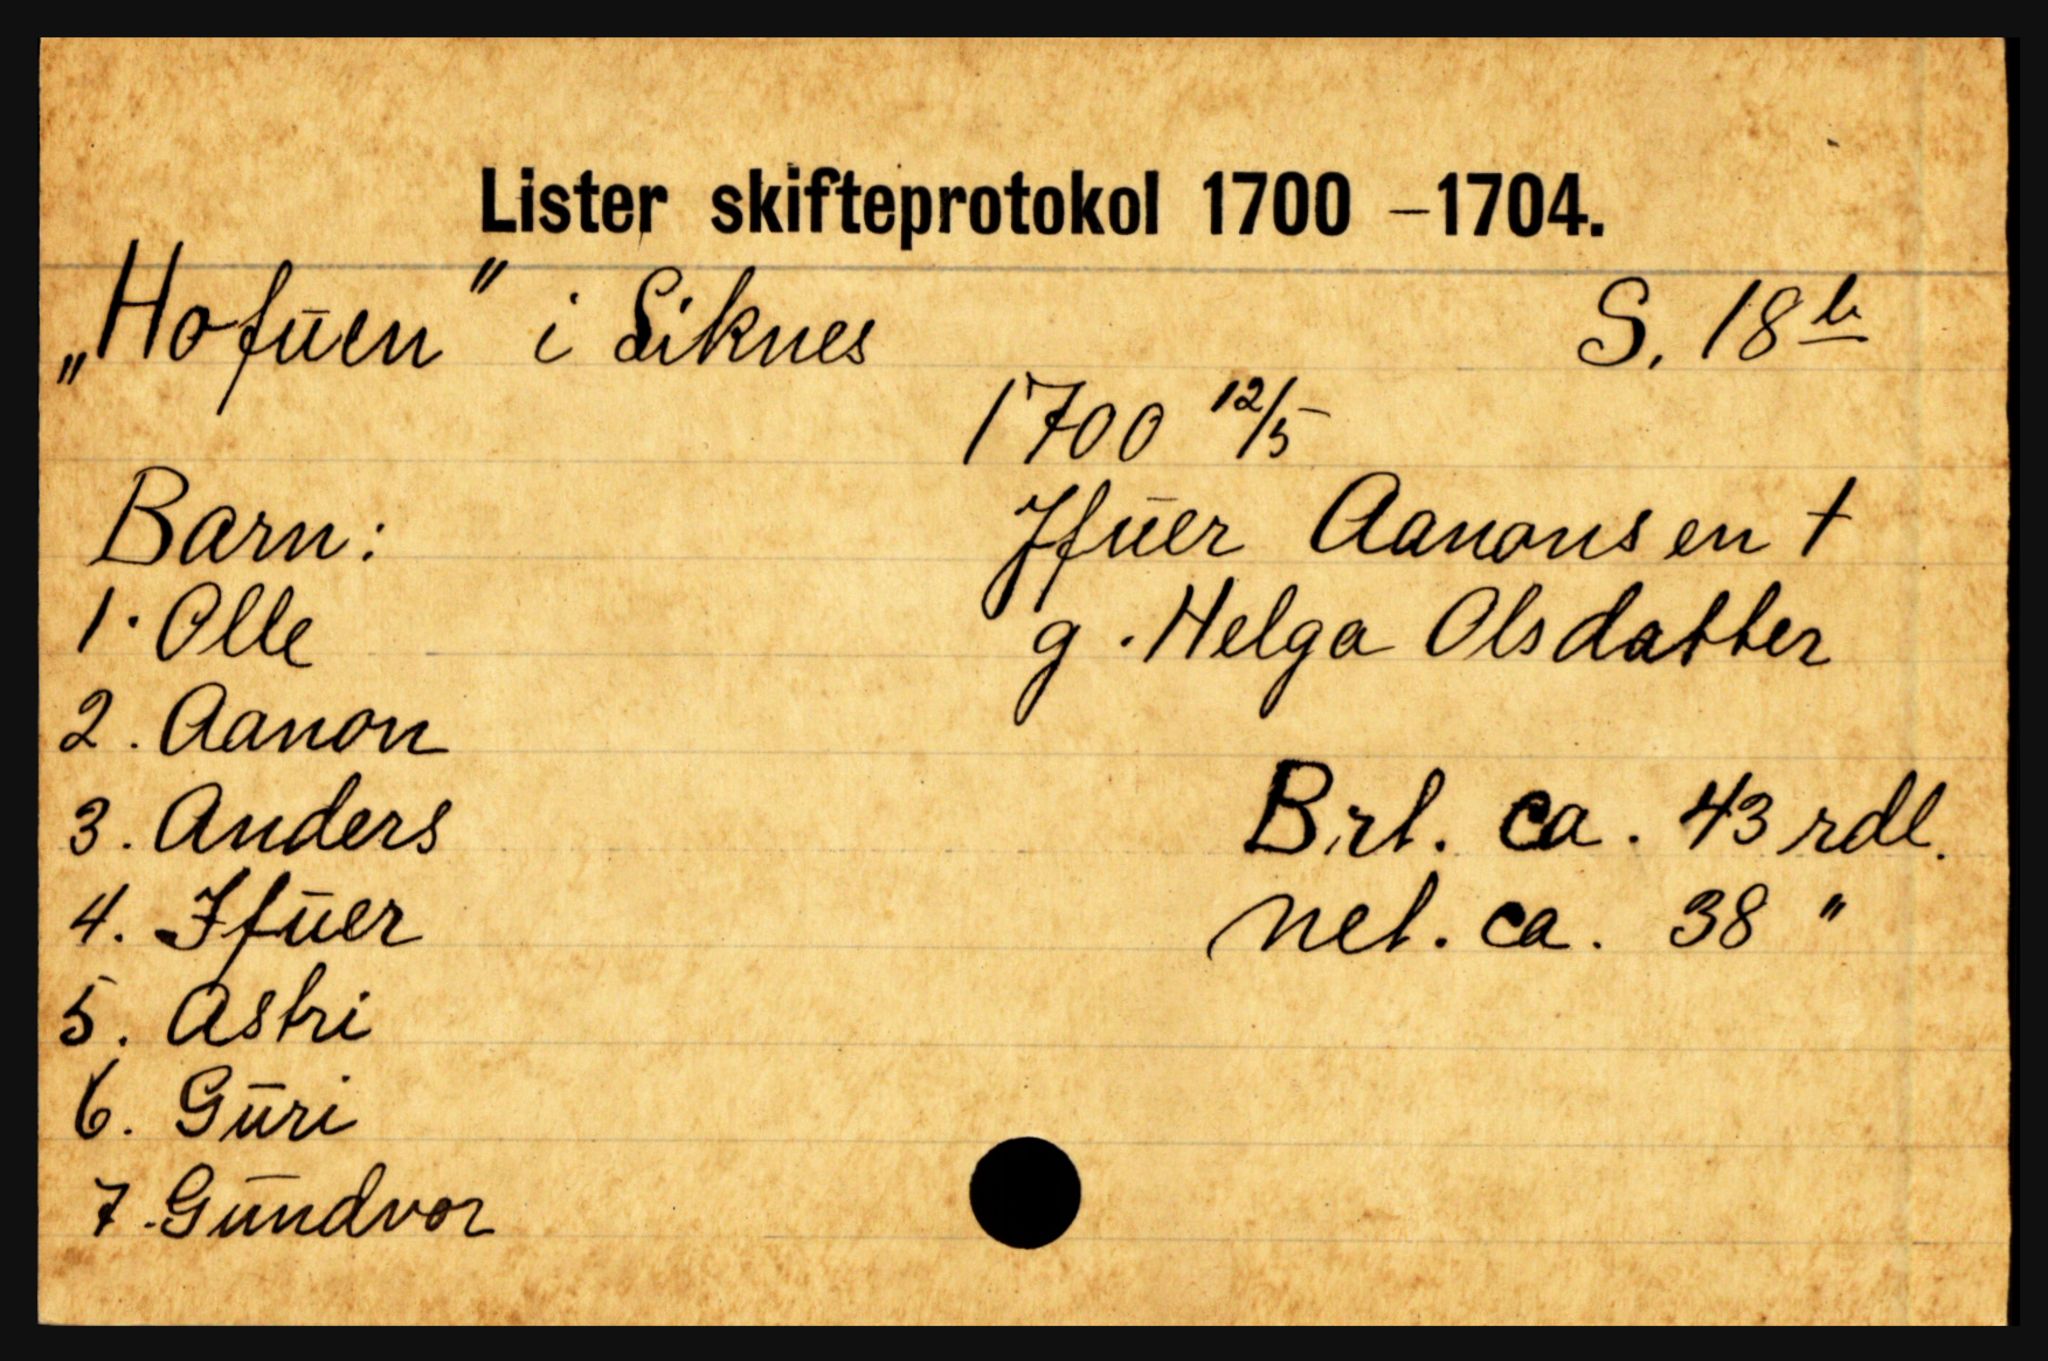 Lister skifteprotokol 1700 – 1704.
„Hofuen" i Siknes S. 18 b
1700 12/5
Barn: Ifuer Aanonsen †
1. Olle g. Helga Olsdatter
2. Aanon
3. Anders Brt. ca. 43 rdl.
4. Ifuer net. ca. 38 "
5. Astri
6. Guri
7. Gundvor